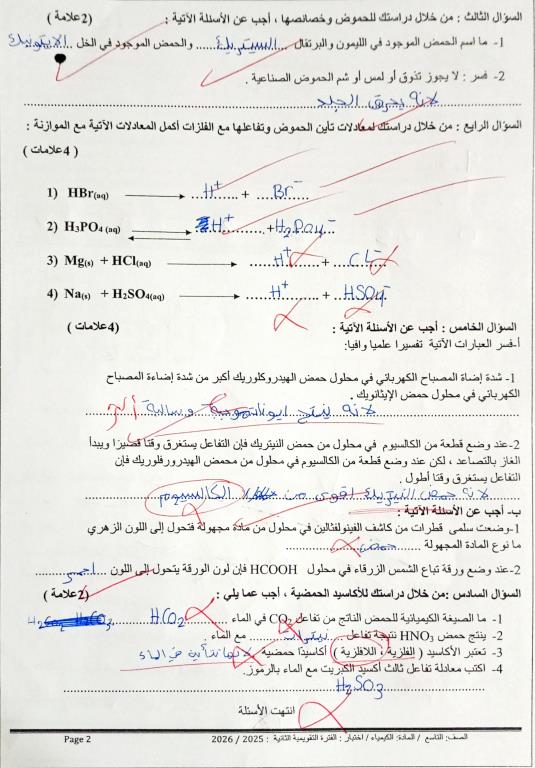 السؤال الثالث : من خلال دراستك للحموض وخصائصها ، أجب عن الأسئلة الآتية : (2علامة )
1- ما اسم الحمض الموجود في الليمون والبرتقال ..السيتريك.. والحمض الموجود في الخل ..الايثانويك
2- فسر : لا يجوز تذوق أو لمس أو شم الحموض الصناعية .
لانه يحرق الجلد
السؤال الرابع : من خلال دراستك لمعادلات تأين الحموض وتفاعلها مع الفلزات أكمل المعادلات الآتية مع الموازنة :
( 4علامات )
1) HBr(aq) → H+ + Br-
2) H3PO4 (aq) ⇄ H+ + H2PO4-
3) Mg(s) + HCl(aq) → H+ + CL-
4) Na(s) + H2SO4(aq) → H+ + HSO4-
السؤال الخامس : أجب عن الأسئلة الآتية : (4علامات )
أ-فسر العبارات الآتية تفسيرا علميا وافيا:
1- شدة إضاة المصباح الكهربائي في محلول حمض الهيدروكلوريك أكبر من شدة إضاءة المصباح
الكهربائي في محلول حمض الإيثانويك .
لانه ينتج ايونات موجبة وسالبة أكثر
2-عند وضع قطعة من الكالسيوم في محلول من حمض النيتريك فإن التفاعل يستغرق وقتا قصيرا ويبدأ
الغاز بالتصاعد ، لكن عند وضع قطعة من الكالسيوم في محلول من محمض الهيدرورفلوريك فإن
التفاعل يستغرق وقتا أطول .
لانه حمض النيتريك اقوى من الكالسيوم
ب- أجب عن الأسئلة الآتية :
1-وضعت سلمى قطرات من كاشف الفينولفثالين في محلول من مادة مجهولة فتحول إلى اللون الزهري
ما نوع المادة المجهولة ..حمض..
2-عند وضع ورقة تباع الشمس الزرقاء في محلول HCOOH فإن لون الورقة يتحول إلى اللون ..احمر..
السؤال السادس :من خلال دراستك للأكاسيد الحمضية ، أجب عما يلي : (2علامة )
1- ما الصيغة الكيميائية للحمض الناتج من تفاعل CO2 في الماء . HCO2
2- ينتج حمض HNO3 نتيجة تفاعل .......... مع الماء .
3- تعتبر الأكاسيد ( الفلزية ، اللافلزية ) أكاسيدًا حمضية لانها تتأين في الماء
4- اكتب معادلة تفاعل ثالث أكسيد الكبريت مع الماء بالرموز.
H2SO3
انتهت الأسئلة
الصف: التاسع / المادة: الكيمياء / اختبار : الفترة التقويمية الثانية : 2025 / 2026 Page 2